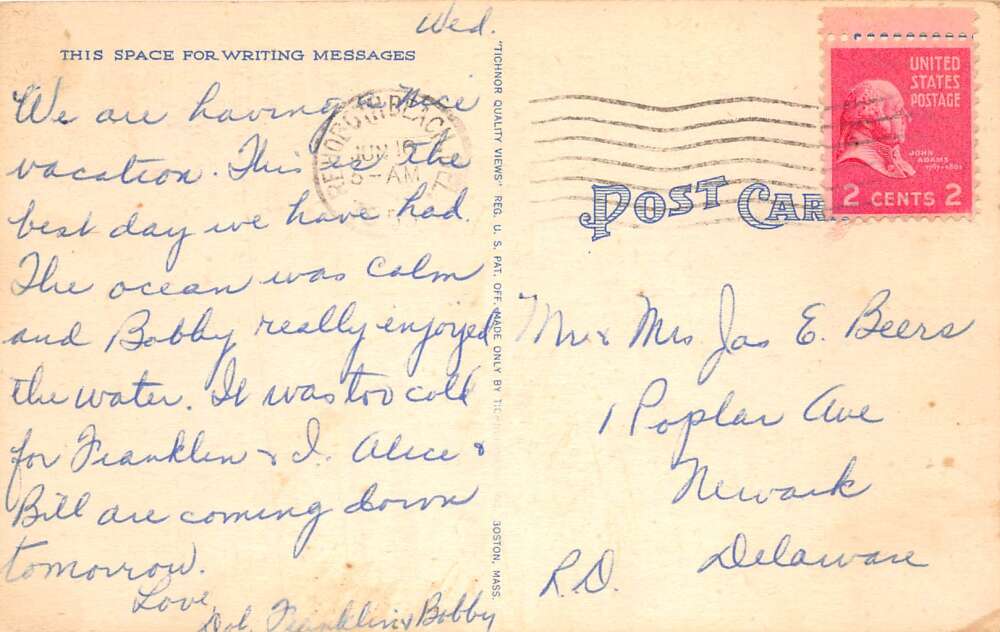 Wed.
THIS SPACE FOR WRITING MESSAGES
We are having a nice
vacation. This is the
best day we have had.
The ocean was calm
and Bobby really enjoyed
the water. It was too cold
for Franklin & I. Alice &
Bill are coming down
tomorrow.
Love,
Dot, Franklin & Bobby
REHOBOTH BEACH DEL.
JUN 16
5-AM
"TICHNOR QUALITY VIEWS" REG. U. S. PAT. OFF. MADE ONLY BY
BOSTON, MASS.
POST CARD
UNITED
STATES
POSTAGE
JOHN
ADAMS
1797-1801
2 CENTS 2
Mr & Mrs Jas E. Beers
1 Poplar Ave
Newark
Delaware
R.D.